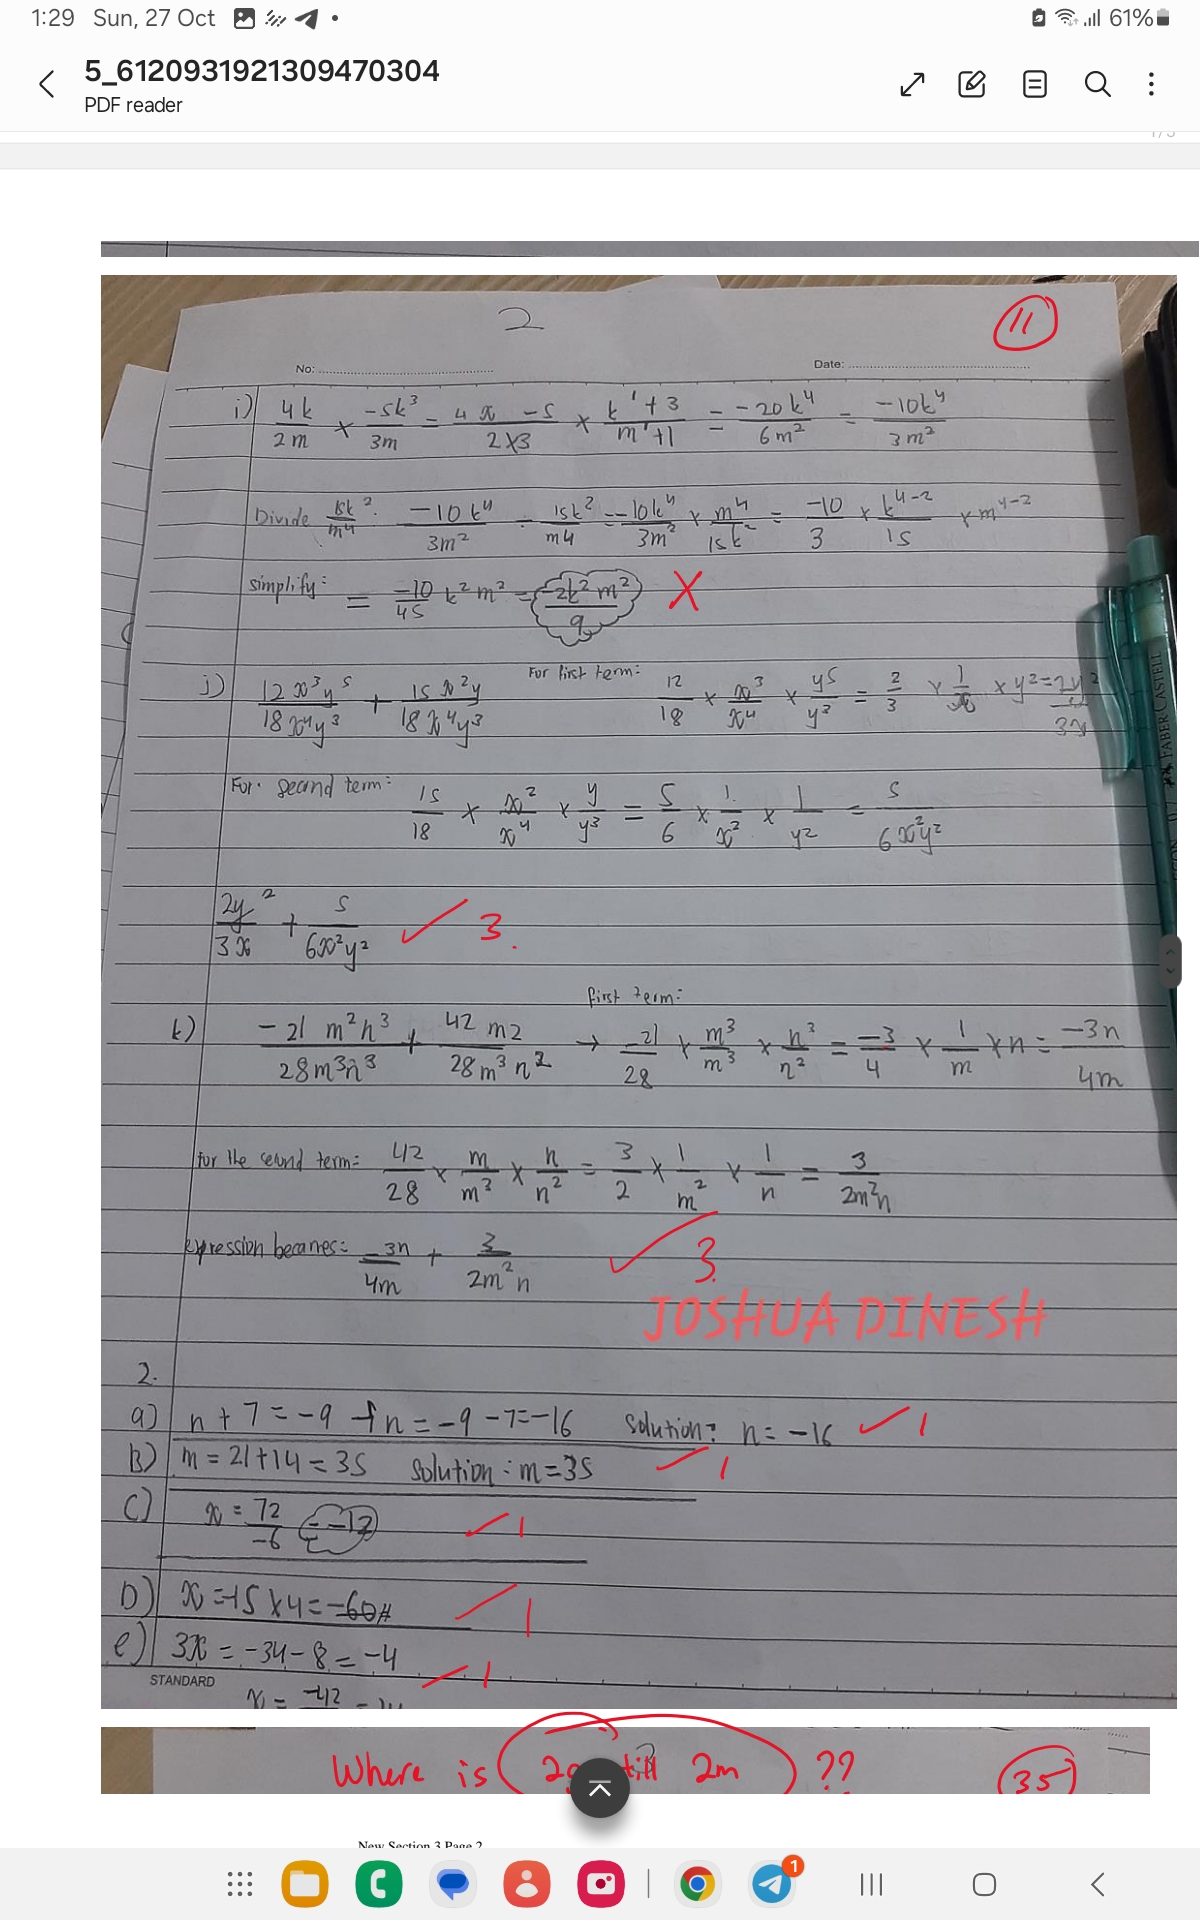 1:29 Sun, 27 Oct 61%
5_6120931921309470304
PDF reader
2
11
No:
Date:
i) 4k/2m × -5k³/3m = 4 x -5/2×3 × k¹+3/m¹+1 = -20k⁴/6m² = -10k⁴/3m²
Divide 15k²/m4: -10k⁴/3m² ÷ 15k²/m4 = -10k⁴/3m² × m4/15k² = -10/3 × k⁴⁻²/15 × m⁴⁻²
Simplify: = -10/45 k²m² = -2k²m²/9 X
j) 12x³y⁵/18x⁴y³ + 15x²y/18x⁴y³ For first term: 12/18 × x³/x⁴ × y5/y³ = 2/3 × 1/x × y² = 2y²/3x
For second term: 15/18 × x²/x⁴ × y/y³ = 5/6 × 1/x² × 1/y² = 5/6x²y²
2y²/3x + 5/6x²y² ✓ 3.
k) -21 m²n³/28m³n³ + 42 m2/28m³n² first term: → -21/28 × m³/m³ × n³/n² = -3/4 × 1/m × n = -3n/4m
for the second term: 42/28 × m/m³ × n/n² = 3/2 × 1/m² × 1/n = 3/2m²n
expression becomes: -3n/4m + 3/2m²n ✓ 3.
JOSHUA DINESH
2.
a) n + 7 = -9 n = -9 -7 = -16 Solution: n = -16 ✓ 1
B) m = 21+14 = 35 Solution: m = 35 ✓ 1
C) x = 72/-6 = -12 ✓ 1
D) x = -15 × 4 = -60 ✓ 1
e) 3x = -34 - 8 = -4 ✓ 1
STANDARD
x = -42
Where is till 2m ??
35
New Section 3 Page 2
1